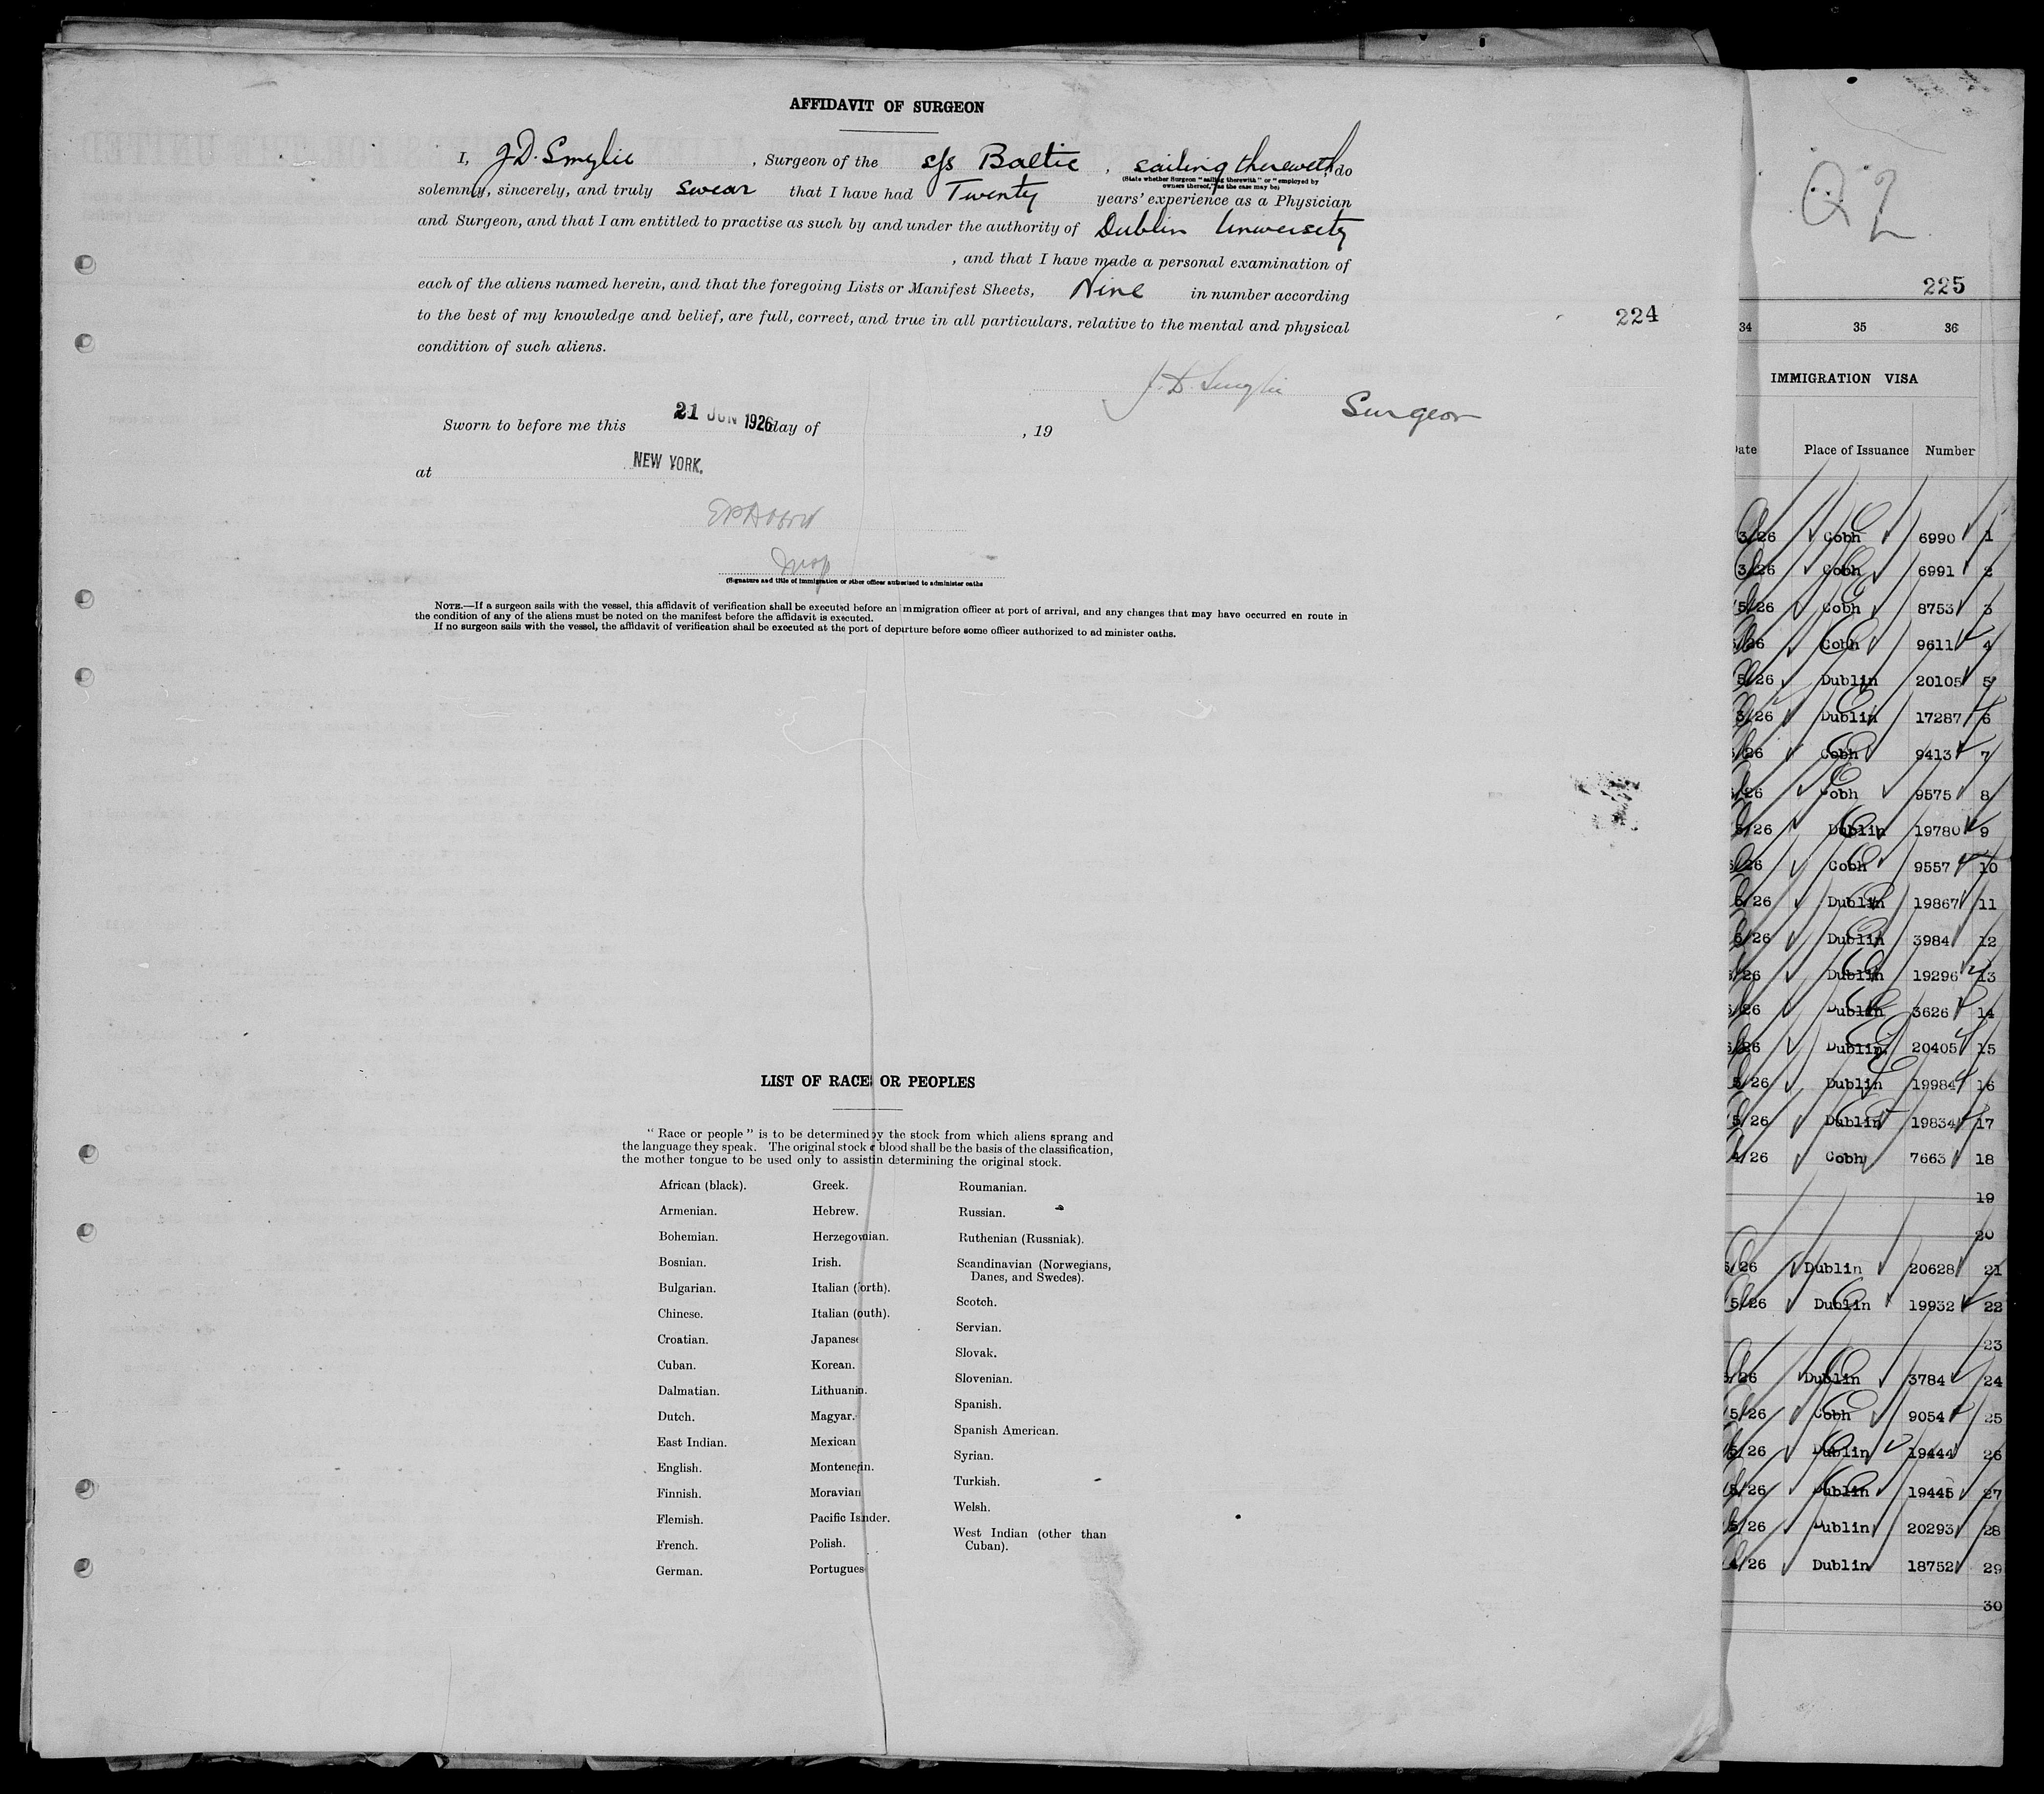 AFFIDAVIT OF SURGEON
I, J.D. Smylie, Surgeon of the s/s Baltic, sailing therewith do
(State whether Surgeon "sailing therewith" or "employed by
owners thereof," as the case may be)
solemnly, sincerely, and truly swear that I have had Twenty years' experience as a Physician
and Surgeon, and that I am entitled to practise as such by and under the authority of Dublin University
, and that I have made a personal examination of
each of the aliens named herein, and that the foregoing Lists or Manifest Sheets, Nine in number according
to the best of my knowledge and belief, are full, correct, and true in all particulars, relative to the mental and physical
condition of such aliens.
224
J. D. Smylie
Surgeon
Sworn to before me this 21 JUN 1926 day of , 19
at NEW YORK.
Insp
(Signature and title of immigration or other officer authorized to administer oaths
NOTE.—If a surgeon sails with the vessel, this affidavit of verification shall be executed before an immigration officer at port of arrival, and any changes that may have occurred en route in
the condition of any of the aliens must be noted on the manifest before the affidavit is executed.
If no surgeon sails with the vessel, the affidavit of verification shall be executed at the port of departure before some officer authorized to ad minister oaths.
LIST OF RACES OR PEOPLES
"Race or people" is to be determined by the stock from which aliens sprang and
the language they speak. The original stock or blood shall be the basis of the classification,
the mother tongue to be used only to assist in determining the original stock.
African (black).
Armenian.
Bohemian.
Bosnian.
Bulgarian.
Chinese.
Croatian.
Cuban.
Dalmatian.
Dutch.
East Indian.
English.
Finnish.
Flemish.
French.
German.
Greek.
Hebrew.
Herzegovinian.
Irish.
Italian (North).
Italian (South).
Japanese
Korean.
Lithuanian.
Magyar.
Mexican
Montenegrin.
Moravian
Pacific Islander.
Polish.
Portuguese
Roumanian.
Russian.
Ruthenian (Russniak).
Scandinavian (Norwegians,
Danes, and Swedes).
Scotch.
Servian.
Slovak.
Slovenian.
Spanish.
Spanish American.
Syrian.
Turkish.
Welsh.
West Indian (other than
Cuban).
225
34 35 36
IMMIGRATION VISA
Date Place of Issuance Number
3/26 Cobh 6990 1
3/26 Cobh 6991 2
5/26 Cobh 8753 3
/26 Cobh 9611 4
5/26 Dublin 20105 5
3/26 Dublin 17287 6
/26 Cobh 9413 7
/26 Cobh 9575 8
5/26 Dublin 19780 9
/26 Cobh 9557 10
5/26 Dublin 19867 11
6/26 Dublin 3984 12
/26 Dublin 19296 13
/26 Dublin 3626 14
/26 Dublin 20405 15
5/26 Dublin 19984 16
5/26 Dublin 19834 17
4/26 Cobh 7663 18
19
20
5/26 Dublin 20628 21
5/26 Dublin 19932 22
23
/26 Dublin 3784 24
5/26 Cobh 9054 25
5/26 Dublin 19444 26
5/26 Dublin 19445 27
5/26 Dublin 20293 28
4/26 Dublin 18752 29
30